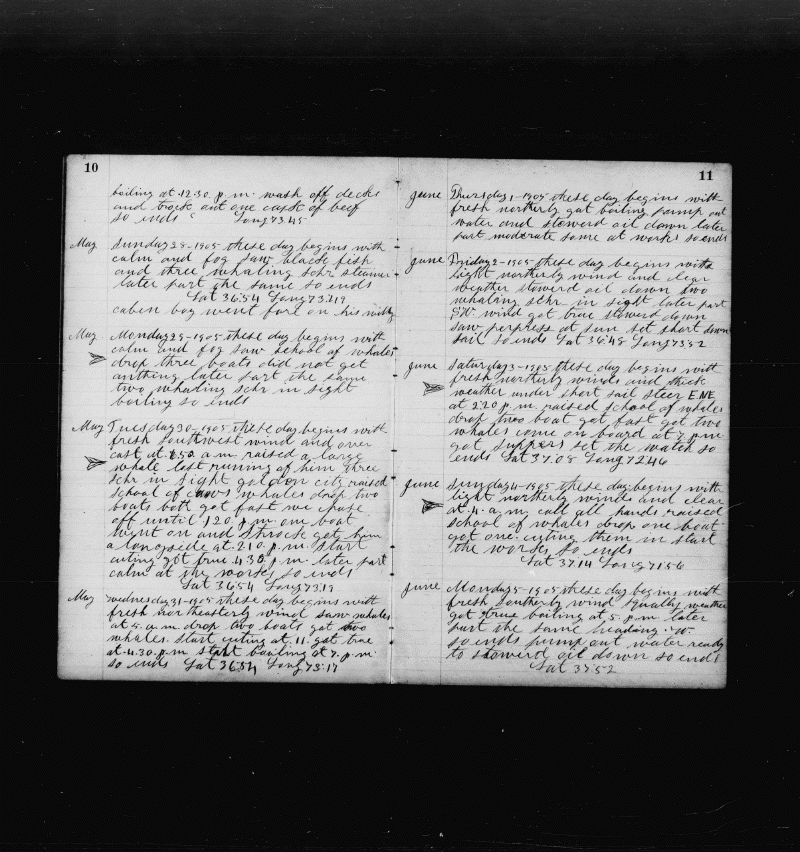 10
boiling at 12.30 p.m. wash off decks
and took out one cask of beef
so ends Long 73.45
May Sunday 28-1905 these day begins with
calm and fog saw black fish
and three whaling schr steamer
later part the same so ends
Lat 36.54 Long 73.19
cabin boy went fore on his
May Monday 29-1905 these day begins with
calm and fog saw school of whales
drop three boats did not get
anthing later part the same
two whaling schr in sight
boiling so ends
May Tuesday 30-1905 these day begins with
fresh southwest wind and over
cast at a.m raised a large
whale lost runing of him three
schr in sight golden city raised
school of whales drop two
boats both got fast we chase
off until 1.20 p.m one boat
went on and struck got him
a longside at 2.10 p.m. start
cuting got true 4.30 p.m later part
calm at the worse so ends
Lat 36.54 Long 73.19
May wednesday 31-1905 these day begins with
fresh northeasterly wind saw whales
at 5. a.m drop two boats got two
whales start cuting at 11. got true
at 4.30. p.m start boiling at 7. p.m.
so ends Lat 36.54 Long 73.17
11
june Thursday 1-1905 these day begins with
fresh northerly got boiling pump out
water and stowerd oil down later
part moderate some at works so ends
june Friday 2-1905 these day begins with
light northerly wind and clear
weather stowerd oil down two
whaling schr in sight later part
S.W. wind got true stowerd down
saw perpress at sun set short down
sail so ends Lat 36.48 Long 73.52
june Saturday 3-1905 these day begins with
fresh northerly winds and thick
weather under short sail steer E.N.E.
at 2.20 p.m. raised school of whales
drop two boat got fast got two
whales come on board at 7. p.m
got suppers set the watch so
ends Lat 37.08 Long 72.46
june Sunday 4-1905 these day begins with
light northerly winds and clear
at 4. a.m, call all hands raised
school of whales drop one boat
got one. cuting them in start
the works, so ends
Lat 37.14 Long 71.56
june Monday 5-1905 these day begins with
fresh southerly wind squally weather
got true boiling at 5. p.m. later
part the same heading
so ends pump out water ready
to stowerd oil down so ends
Lat 37.52